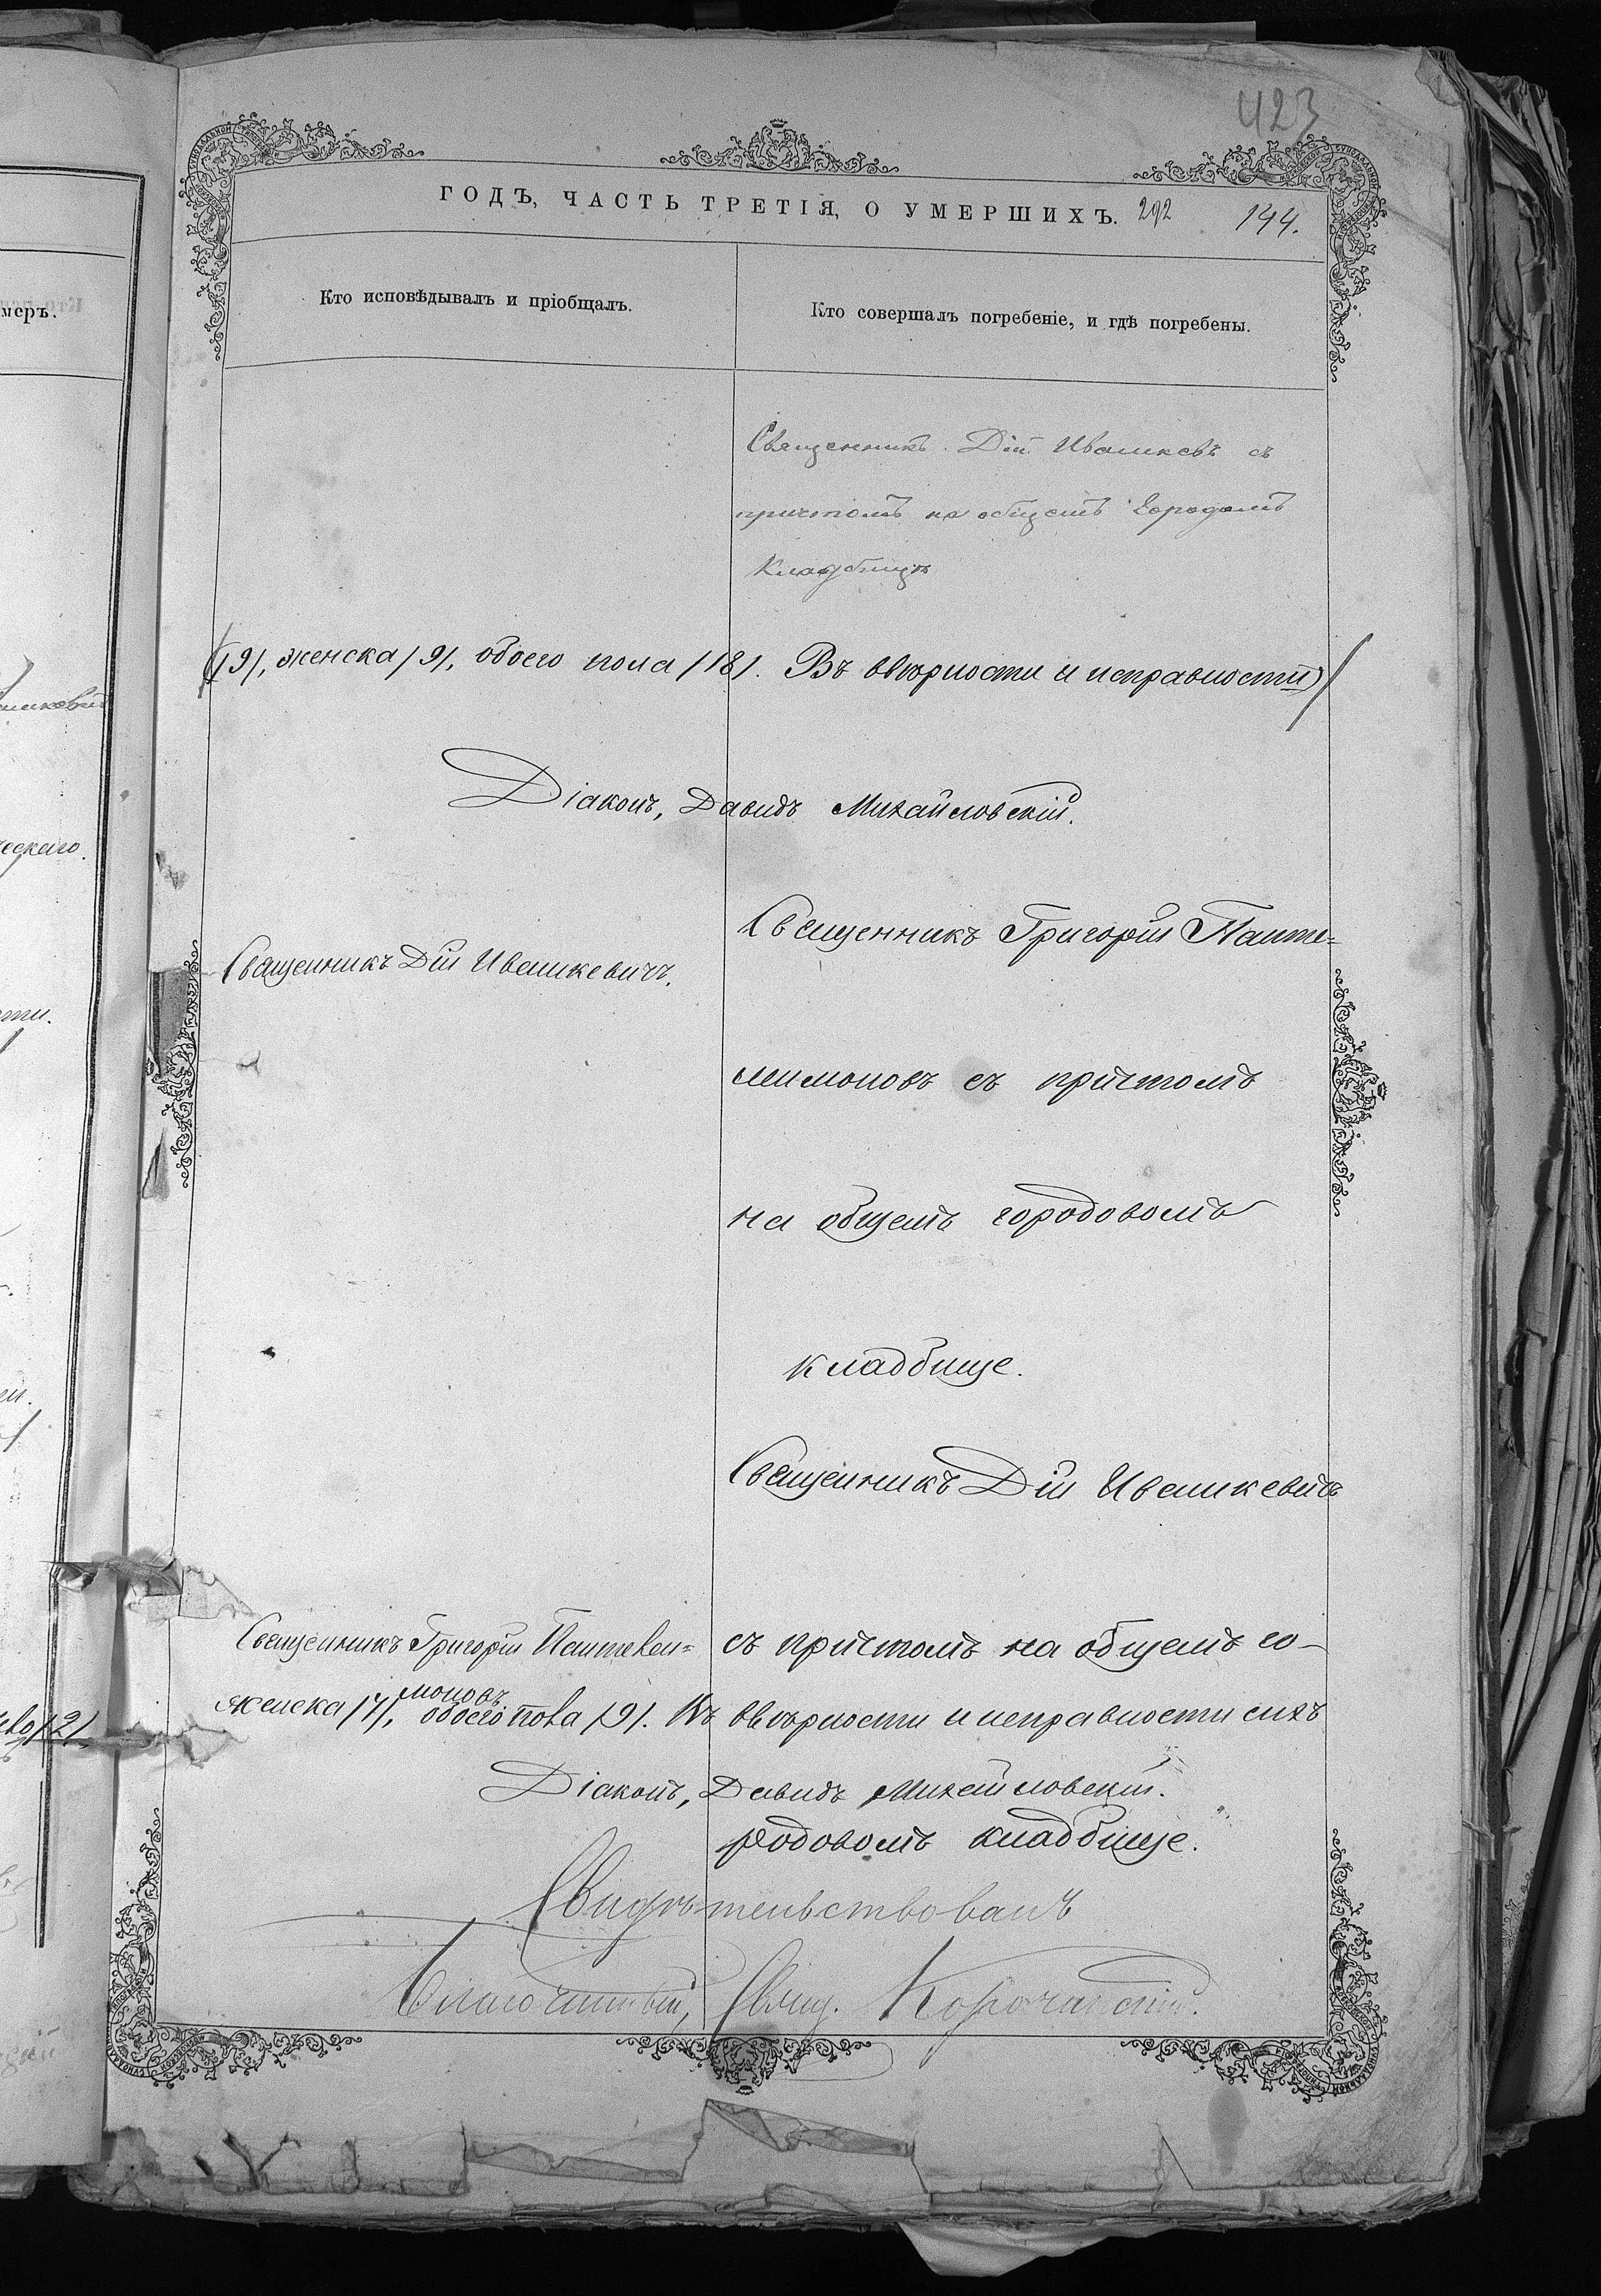 423
ГОДЪ, ЧАСТЬ ТРЕТІЯ, О УМЕРШИХЪ. 292 144.
Кто исповѣдывалъ и пріобщалъ.
Кто совершалъ погребеніе, и гдѣ погребены.
меръ.
Священникъ Дій Ивашкевъ съ
причтомъ на общемъ Городомъ
Кладбищѣ
/9/, женска /9/, обоего пола /18/. Въ вѣрности и исправности
Діаконъ, Давидъ Михайловскій.
Священникъ Дій Ивашкевичъ.
Священникъ Григорій Панте-
леимоновъ съ причтомъ
на общемъ городовомъ
кладбище.
Священникъ Дій Ивашкевичъ
Священникъ Григорій Пантелеи-
моновъ
съ причтомъ на общемъ го-
женска /7/, обоего пола /9/. Въ вѣрности и исправности сихъ
Діаконъ, Давидъ Михайловскій.
родовомъ кладбище.
Свидѣтельствовалъ
Благочинный, Свящ. Корочанскій.